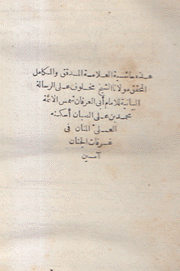 هذه حاشية العلامة المدقق والكامل
المحقق مولانا الشيخ مخلوف على الرسالة
البيانية للامام أبي العرفان شمس الائمة
محمد بن على الصبان أسكنه
العلى المنان فى
غرفات الجنان
آمين